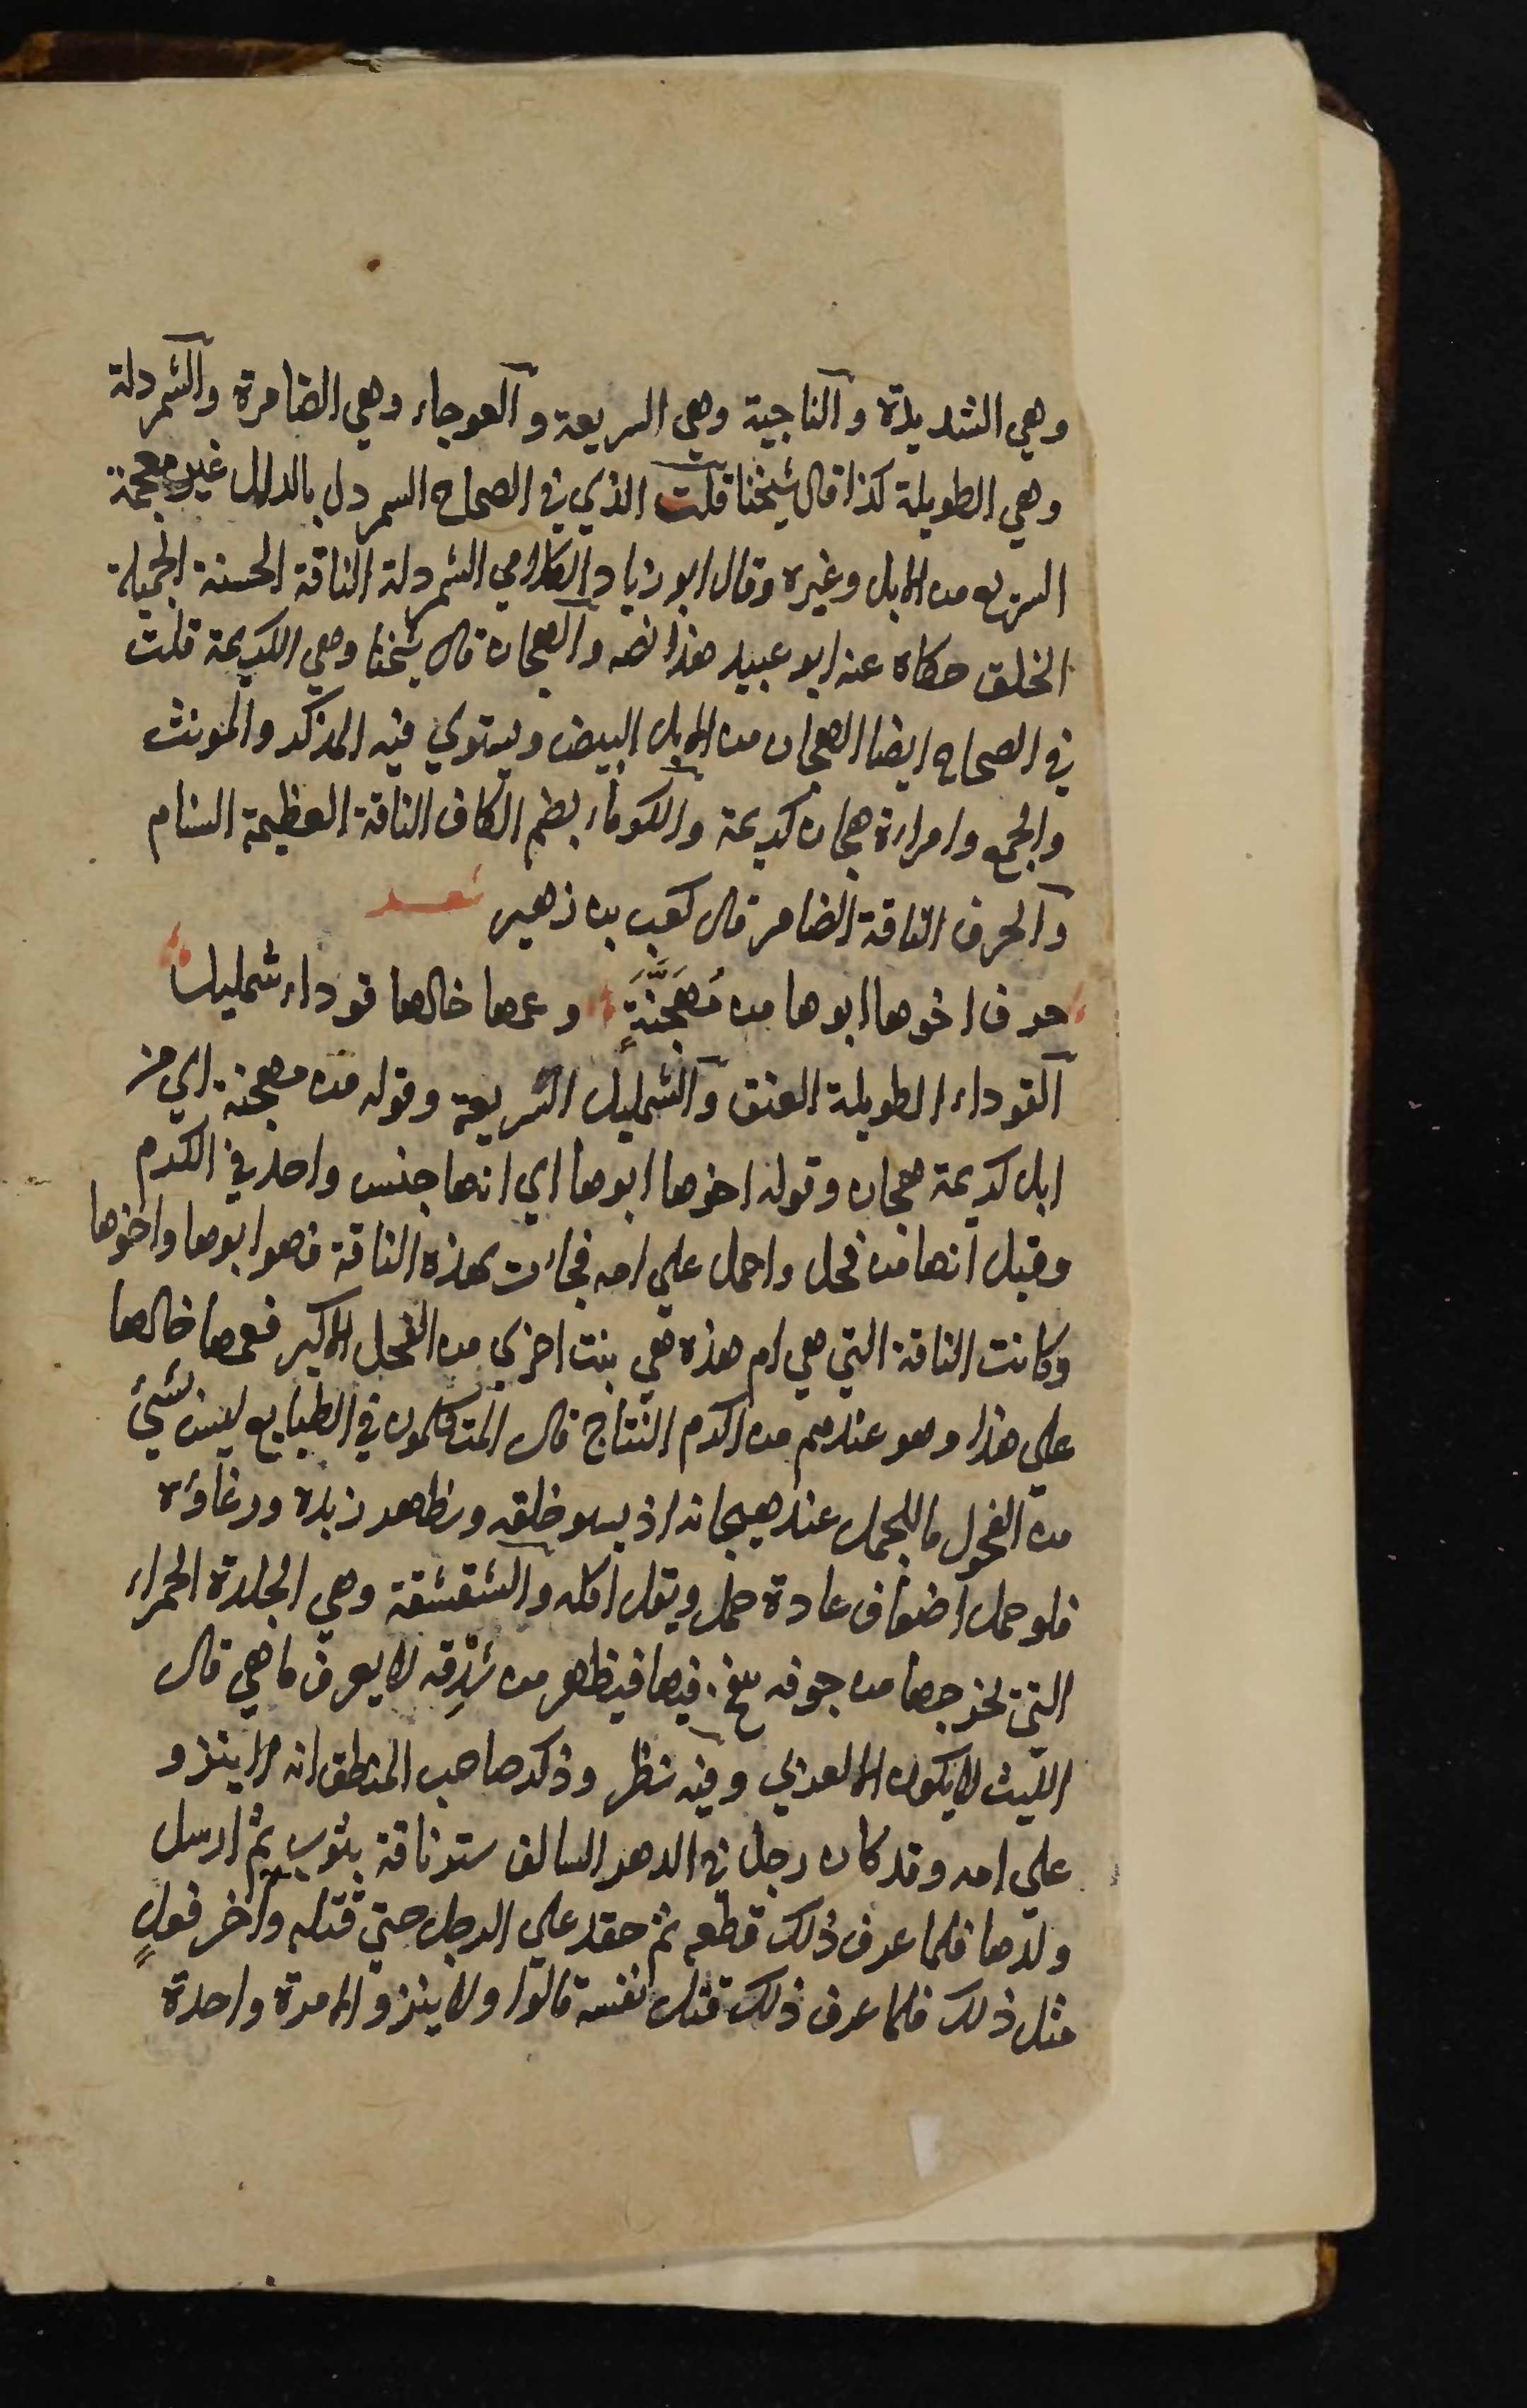 وهي الشديدة والناجية وهي السريعة والعوجاء وهي الضامرة والشمردلة
وهي الطويلة كذا قال شيخنا قلت الذي في الصحاح السمردل بالدال غير معجمة
السريع من الابل وغيره وقال ابو زياد الكلامي الشمردلة الناقة الحسنة الجميلة
الخلق حكاه عنه ابو عبيد هذا نصه والهجان قال شيخنا وهي الكريمة قلت
في الصحاح ايضا الهجان من الابل البيض ويستوي فيه المذكر والمونث
والجمع وامراءة هجان كريمة والكوماء بضم الكاف الناقة العظيمة السنام
والحرف الناقة الضامر قال كعب بن زهير شعر
حرف اخوها ابوها من مُهَجَّنَةٍ وعمها خالها قوداء شمليل
القوداء الطويلة العنق والشمليل السريعة وقوله من مهجنة اي من
ابل كريمة هجان وقوله اخوها ابوها اي انها جنس واحد في الكرم
وقيل انها من فحل واحمل علي امه فجاءت بهذه الناقة فهو ابوها واخوها
وكانت الناقة التي هي ام هذه هي بنت اخري من الفحل الاكبر فعمها خالها
علي هذا وهو عندهم من اكرم النتاج قال المتكلمون في الطبايع ليس لشئ
من الفحول ما للجمل عند هيجانه اذ يسو خلقه ويظهر زبده ورغاؤه
فلو حمل اضعاف عادة حمل ويقل اكله والشقشقة وهي الجلدة الحمراء
التي يخرجها من جوفه ينفخ فيها فيظهر من شدقه لا يعرف ما هي قال
الليث لا يكون الا لعربي وفيه نظر وذكر صاحب المنطق انه لا ينزو
علي امه وقد كان رجل في الدهر السالف ستر ناقة بثوب ثم ارسل
ولدها فلما عرف ذلك قطعه ثم حقد علي الرجل حتي قتله وآخر فعل
مثل ذلك فلما عرف ذلك قتل نفسه قالوا ولا ينزو الا مرة واحدة